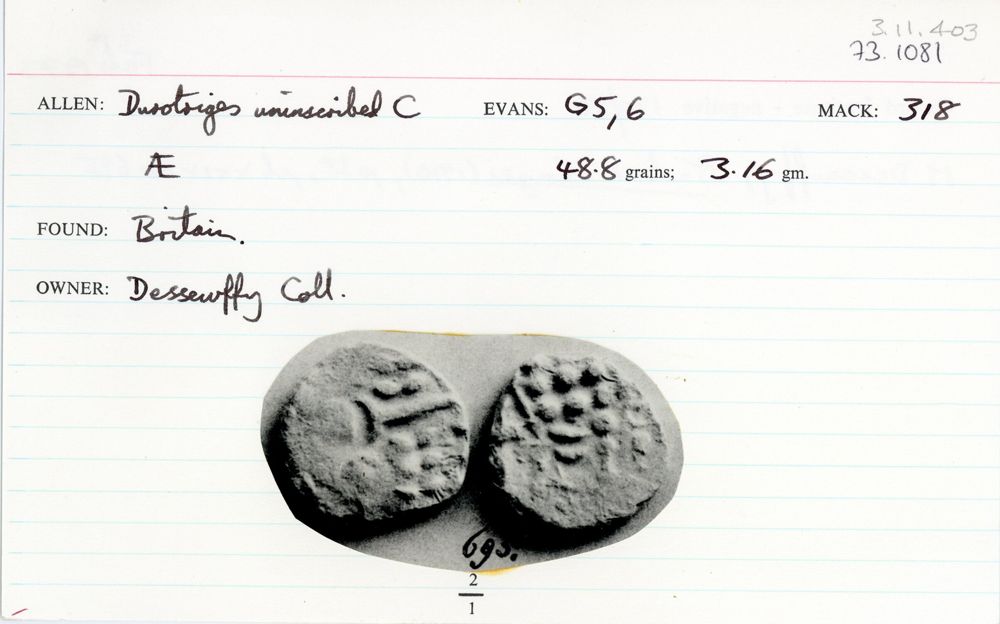 3.11.403
73.1081
ALLEN: Durotriges uninscribed C EVANS: G5,6 MACK: 318
Æ 48.8 grains; 3.16 gm.
FOUND: Britain.
OWNER: Dessewffy Coll.
693.
2
1